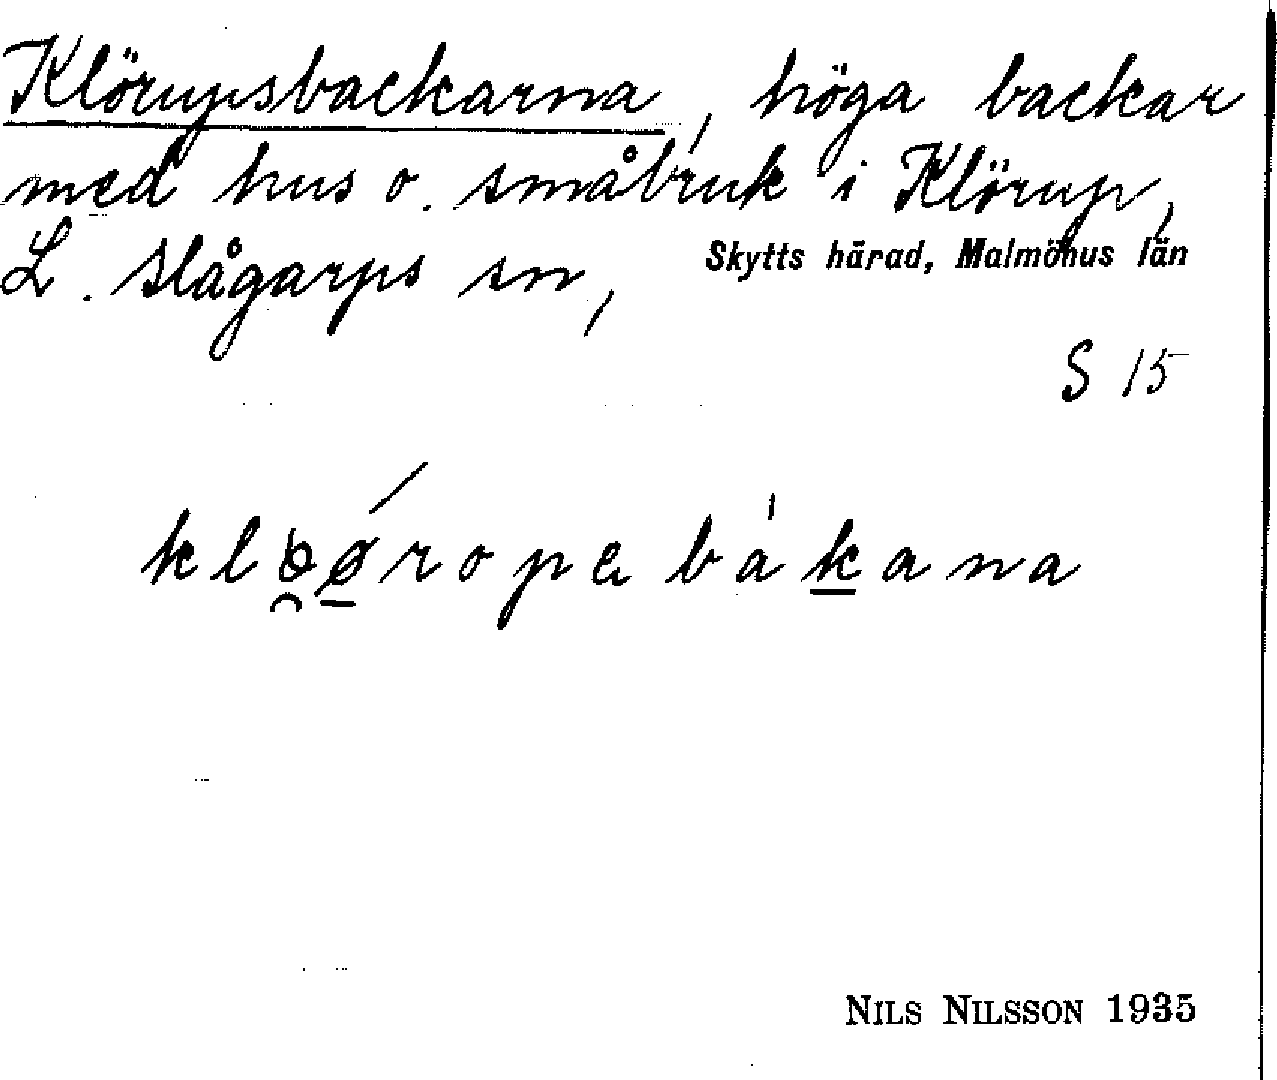 Klörupsbackarna, höga backar
med hus o. småbruk i Klörup,
L. Slågarps sn, Skytts härad, Malmöhus län
S 15
bákana
NILS NILSSON 1935